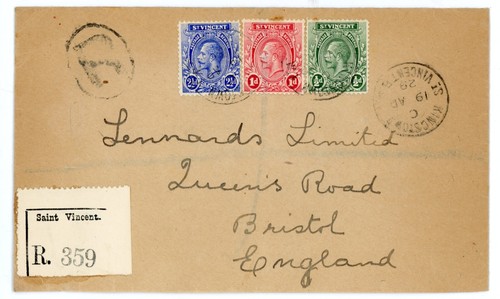 ST VINCENT
2½d
2½d
ST VINCENT
1d
1d
ST VINCENT
½d
½d
KINGSTOWN
C
19 AP
29
ST. VINCENT
Lennards Limited
Queens Road
Bristol
England
Saint Vincent.
R. 359